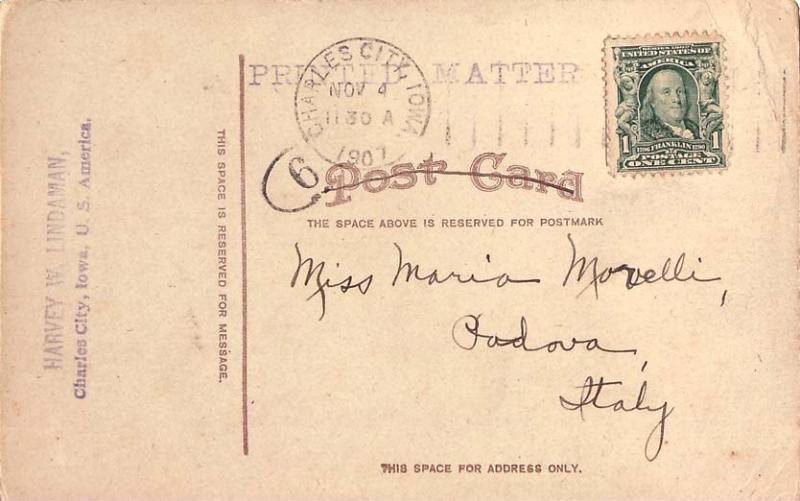 HARVEY W. LINDAMAN,
Charles City, Iowa, U. S. America.
THIS SPACE IS RESERVED FOR MESSAGE.
PRINTED MATTER
CHARLES CITY, IOWA
NOV 4
1130 A
1907
SERIES 1902
UNITED STATES OF
AMERICA
1 1706 FRANKLIN 1790 1
POSTAGE ONE CENT
6
Post Card
THE SPACE ABOVE IS RESERVED FOR POSTMARK
Miss Maria Movelli,
Padova,
Italy
THIS SPACE FOR ADDRESS ONLY.